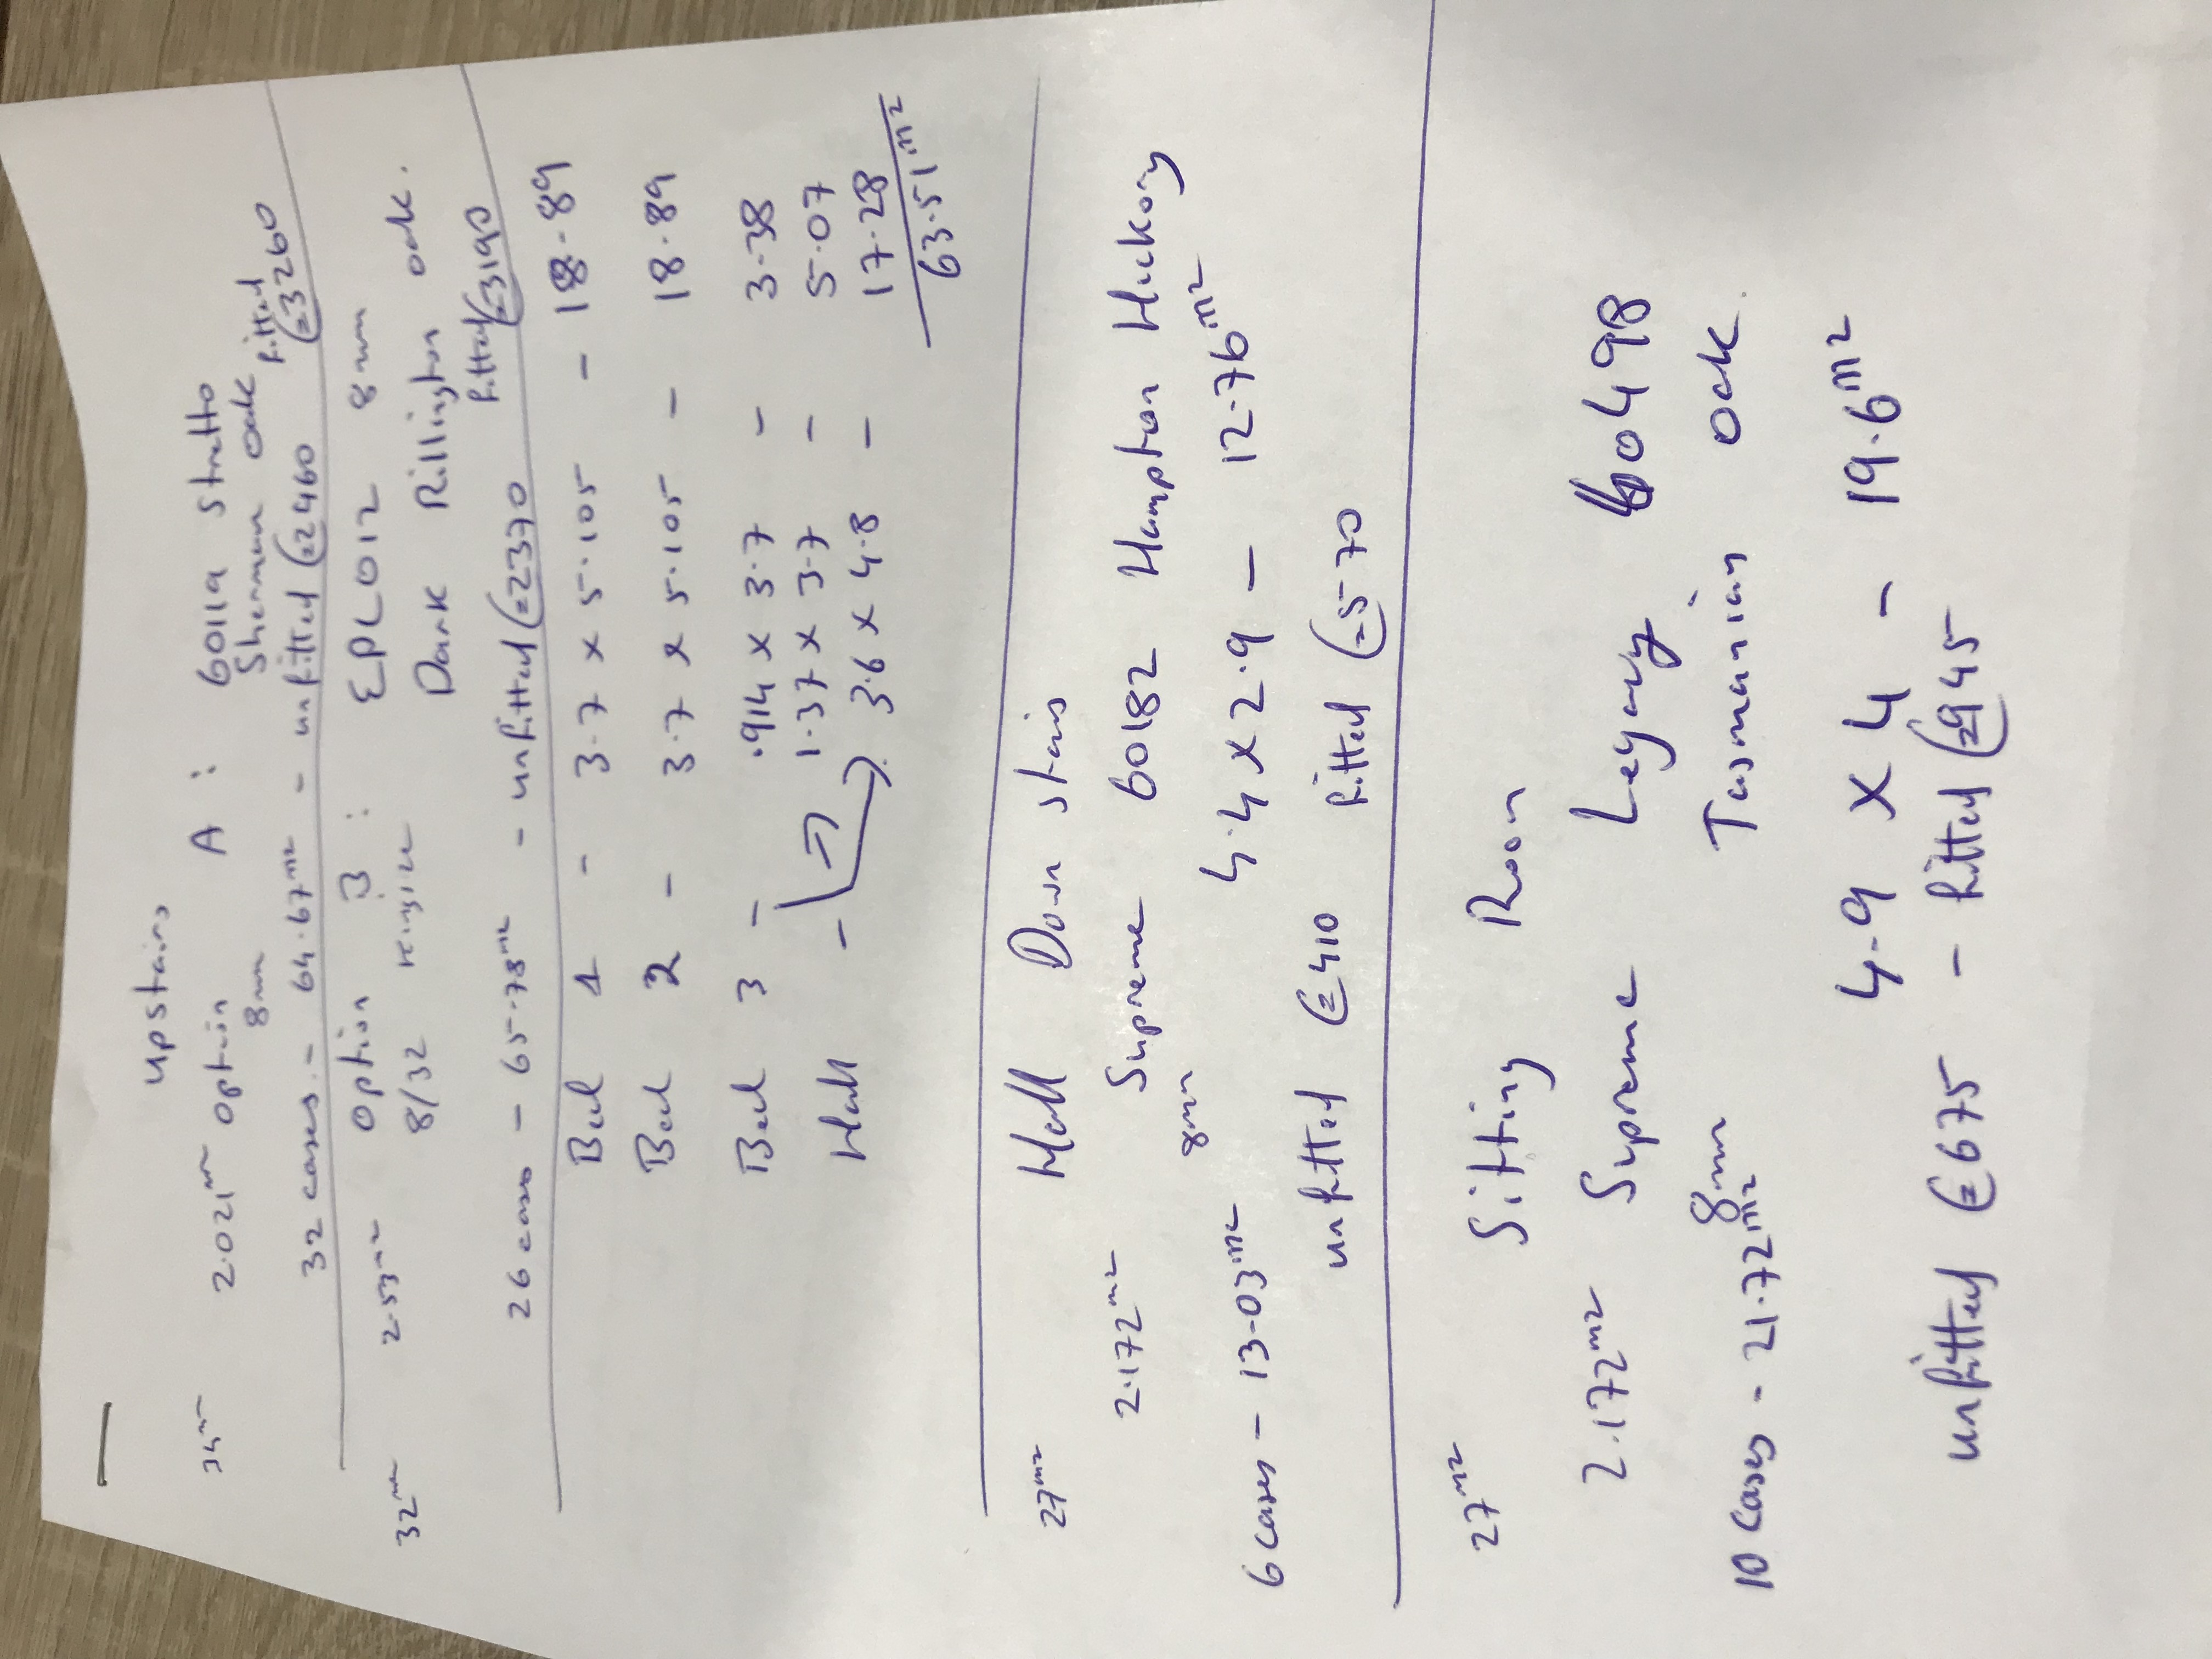 upstairs
34m² 2.021m² option A : 60119 Stretto
8mm Sherman oak
32 cases - 64.67m² - unfitted £2460 fitted £3260
32m² 2.53m² option B : EPL012 8mm
8/32 Kingsize Dark Rillington oak.
26 cases - 65.78m² - unfitted £2370 fitted £3190
Bed 1 - 3.7 x 5.105 - 18.89
Bed 2 - 3.7 x 5.105 - 18.89
Bed 3 - .914 x 3.7 - 3.38
Hall - 1.37 x 3.7 - 5.07
3.6 x 4.8 - 17.28
63.51m²
Hall Down stairs
27m² 2.172m² Supreme 60182 Hampton Hickory
8mm
6 cases - 13.03m² 4.4 x 2.9 - 12.76m²
unfitted £410 fitted £570
Sitting Room
27m² 2.172m² Supreme Legacy 60498
8mm Tasmanian oak
10 cases - 21.72m²
4.9 x 4 - 19.6m²
unfitted £675 - fitted £945